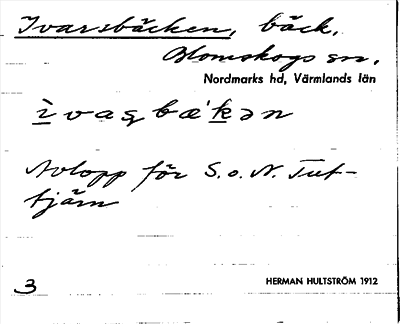 Ivarsbäcken, bäck,
Blomskogs sn,
Nordmarks hd, Värmlands län
ìvaʂbæ'kən
Avlopp för S. o. N. Tut-
tjärn
3 HERMAN HULTSTRÖM 1912